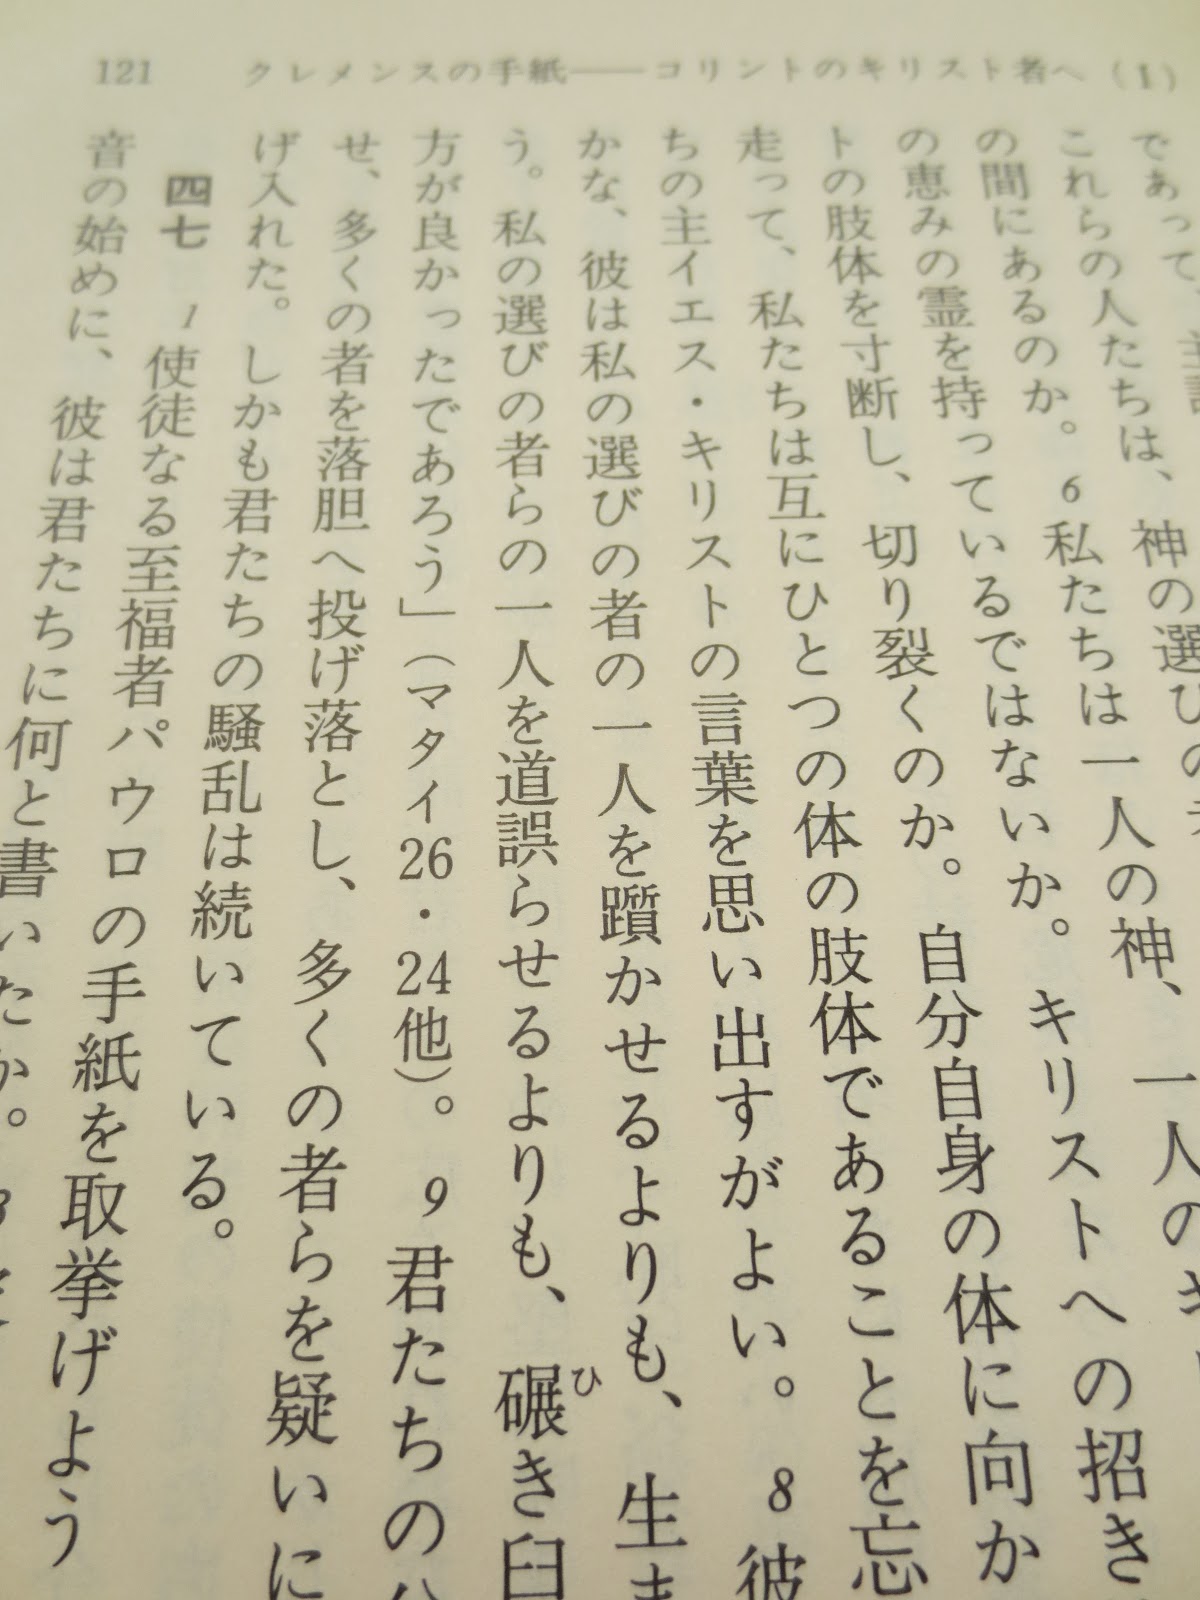 121 クレメンスの手紙――コリントのキリスト者へ（Ⅰ）
であって、主
これらの人たちは、神の選びの
の間にあるのか。6私たちは一人の神、一人のキ
の恵みの霊を持っているではないか。キリストへの招き
トの肢体を寸断し、切り裂くのか。自分自身の体に向か
走って、私たちは互にひとつの体の肢体であることを忘
ちの主イエス・キリストの言葉を思い出すがよい。8彼
かな、彼は私の選びの者の一人を躓かせるよりも、生ま
う。私の選びの者らの一人を道誤らせるよりも、碾き臼
ひ
方が良かったであろう」（マタイ26・24他）。9君たちの分
せ、多くの者を落胆へ投げ落とし、多くの者らを疑いに
げ入れた。しかも君たちの騒乱は続いている。
四七 1使徒なる至福者パウロの手紙を取挙げよう
音の始めに、彼は君たちに何と書いたか。3